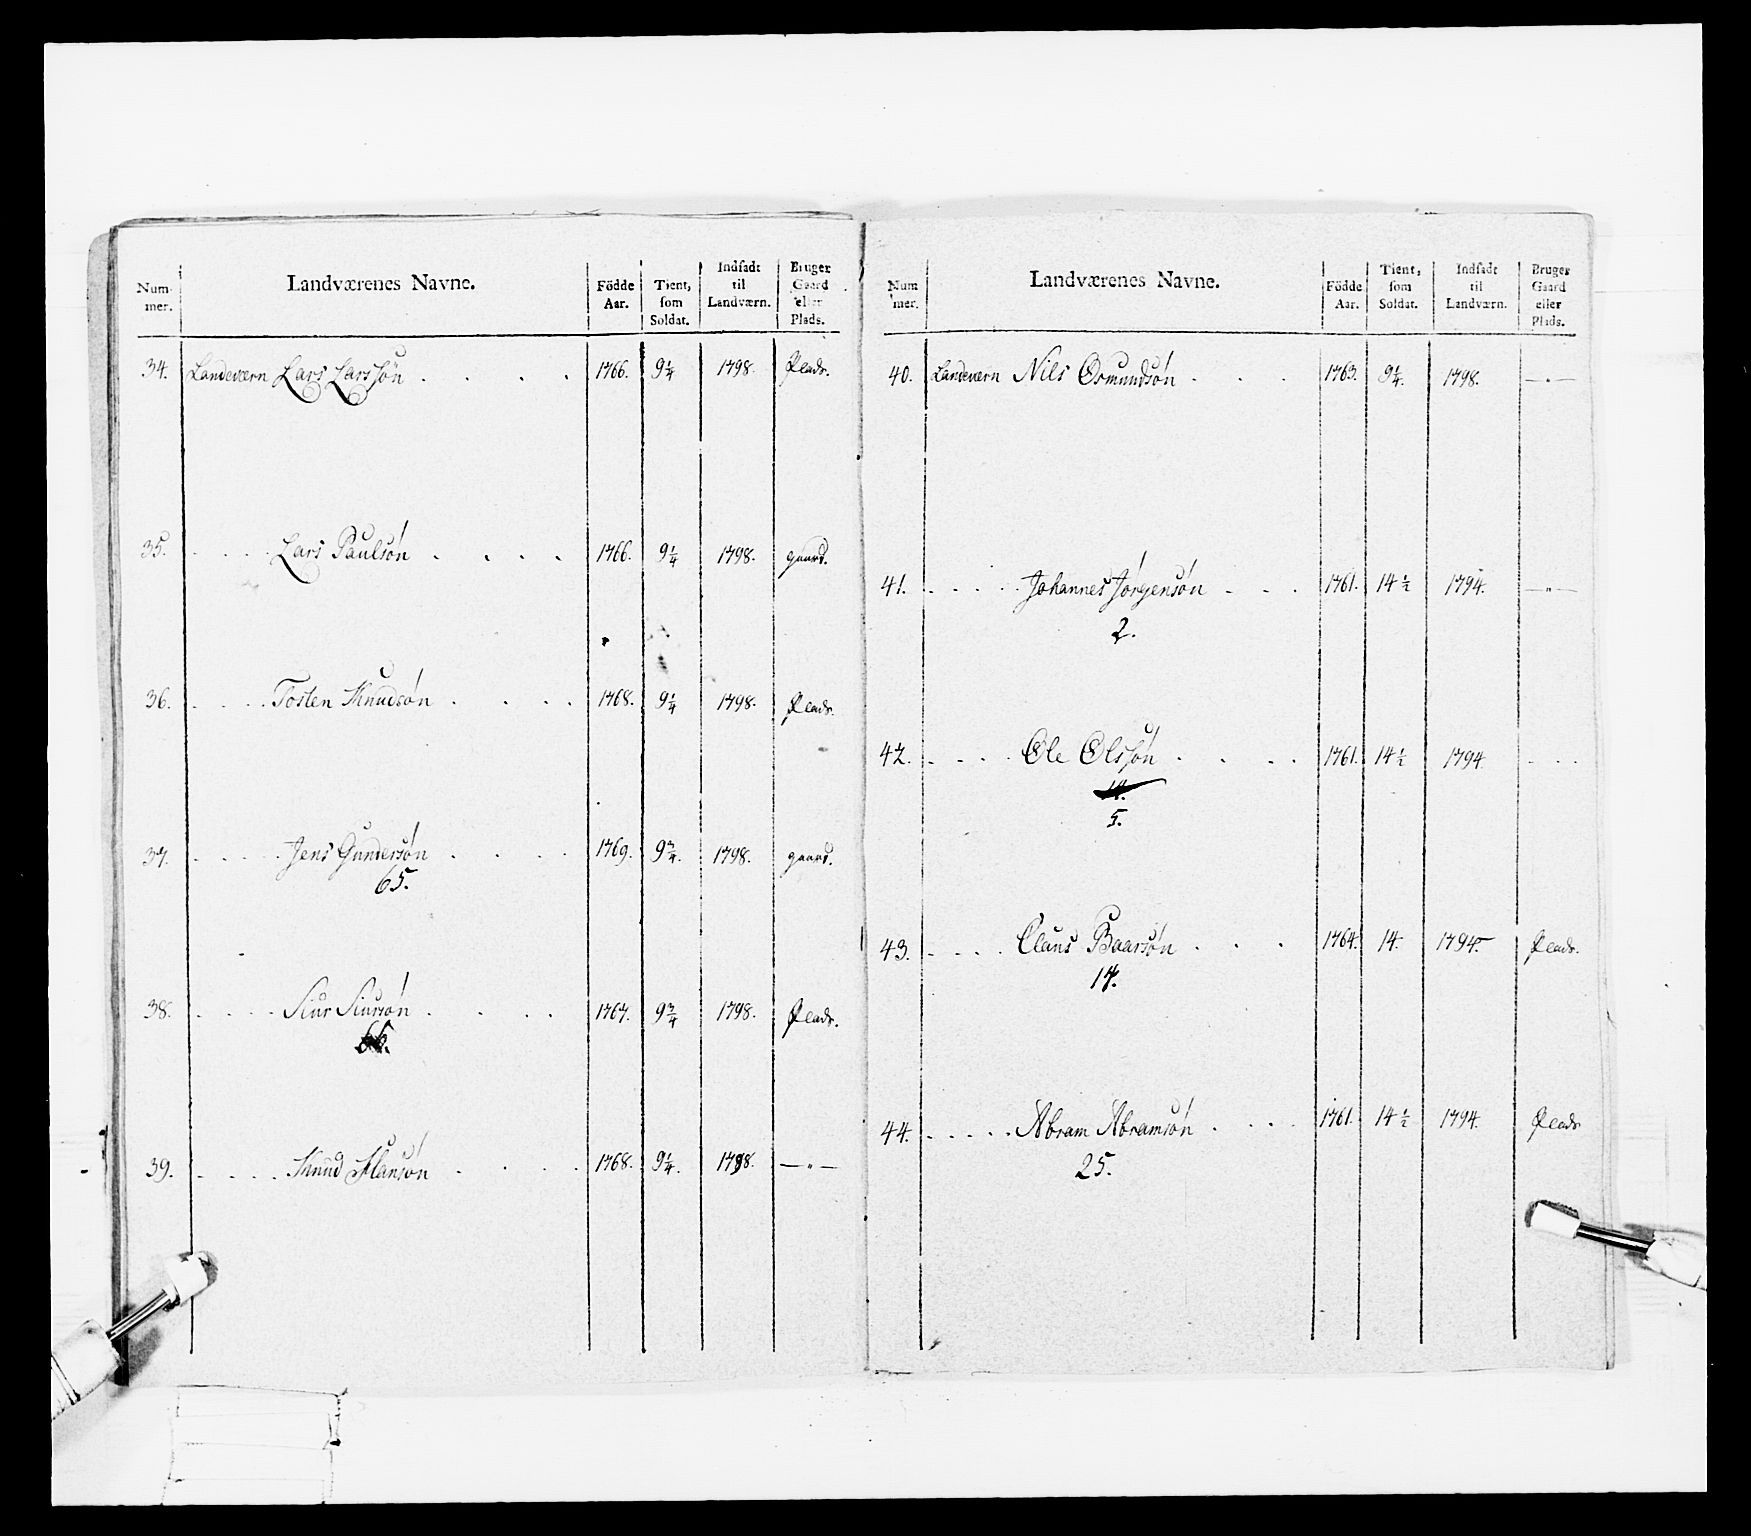 Num-mer. Landværenes Navne. Födde Aar. Tient, som Soldat. Indsadt til Landværn. Bruger Gaard eller Plads.
34. Landeværn Lars Larssøn . . . . 1766. 9 1/4 1798. Plads.
35. . . . . Lars Paulsøn . . . . 1766. 9 1/4 1798. gaard.
36. . . . . Tosten Knudsøn . . . 1768. 9 1/4 1798. Plads.
37. . . . . Jens Gundersøn . . . . 1769. 9 3/4. 1798. gaard.
65.
38. . . . . Siur Siursøn . . . . 1767. 9 3/4 1798. Plads.
39. . . . . Knud Hansøn . . . . 1768. 9 1/4. 1798. — " —
Num mer. Landværenes Navne. Födde Aar. Tient, som Soldat. Indsadt til Landværn. Bruger Gaard eller Plads.
40. Landeværn Nils Osmundsøn . . . 1763. 9 1/4. 1798. — " —
41. . . . . . Johannes Jørgensøn . . . 1761. 14 1/2 1794. — " —
2.
42. . . . . Ole Olssøn . . . . 1761. 14 1/2 1794. . . .
5.
43. . . . . Claus Baarsøn . . . 1764. 14. 1794. Plads.
17.
44. . . . . . Abram Abramsøn . . . . 1761. 14 1/2 1794. Plads
25.